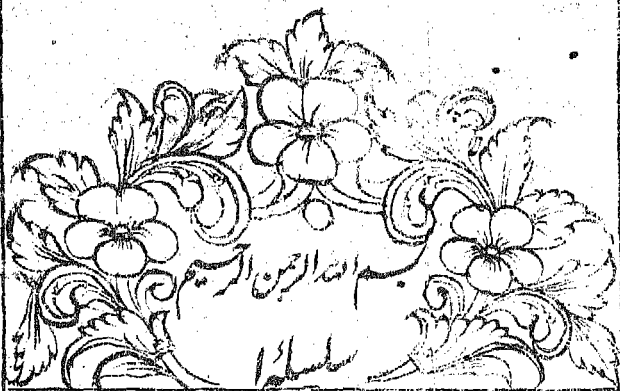 بسم الله الرحمن الرحيم
سلسلہ ا